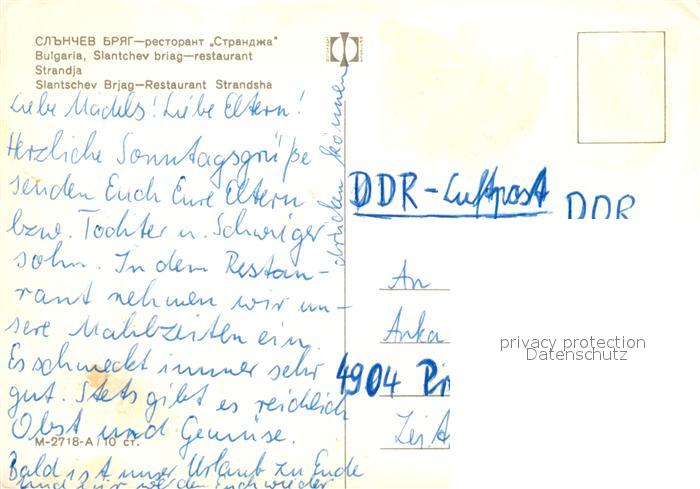 СЛЪНЧЕВ БРЯГ—ресторант „Странджа"
Bulgaria, Slantchev briag—restaurant
Strandja
Slantschev Brjag—Restaurant Strandsha
Liebe Mädels! Liebe Eltern!
Herzliche Sonntagsgrüße
senden Euch Eure Eltern
bzw. Tochter u. Schwiger
sohn. In dem Restau-
rant nehmen wir un-
sere Mahlzeiten ein.
Es schmeckt immer sehr
gut. Stets gibt es reichlich
Obst und Gemüse.
М-2718-А/10 ст.
Bald ist unser Urlaub zu Ende
und wir werden Euch wieder
drücken können
DDR-Luftpost
DDR
An
Anka
4904
privacy protection
Datenschutz